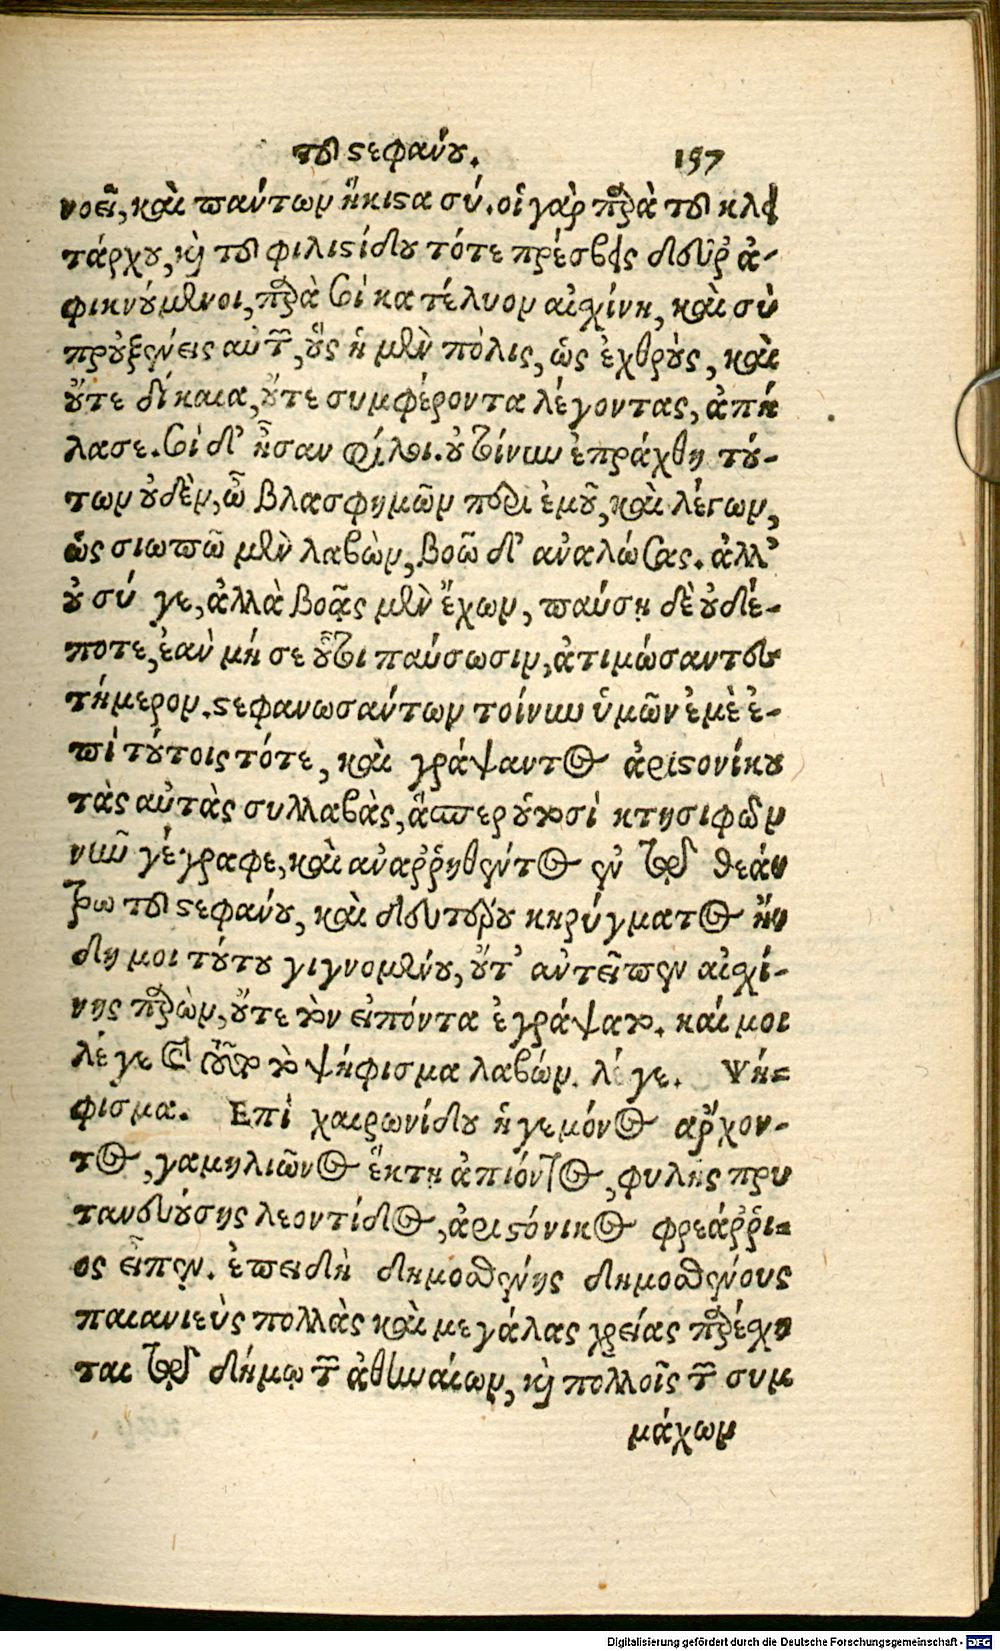 τοῦ στεφάνου. 157
νοεῖ, καὶ πάντων ἥκιστα σύ. οἱ γὰρ παρὰ τοῦ κλει
τάρχου, καὶ τοῦ φιλιστίδου τότε πρέσβεις δεῦρ' ἀ-
φικνούμενοι, παρὰ σοὶ κατέλυον αἰσχίνη, καὶ σὺ
προὐξένεις αὐτῶν, οὓς ἡ μὲν πόλις, ὡς ἐχθροὺς, καὶ
οὔτε δίκαια, οὔτε συμφέροντα λέγοντας, ἀπή
λασε. σοὶ δ' ἦσαν φίλοι. οὐ τοίνυν ἐπράχθη τού-
των οὐδὲν, ὦ βλασφημῶν περὶ ἐμοῦ, καὶ λέγων,
ὡς σιωπῶ μὲν λαβὼν, βοῶ δ' ἀναλώσας. ἀλλ'
οὐ σύ γε, ἀλλὰ βοᾷς μὲν ἔχων, παύσῃ δὲ οὐδέ-
ποτε, ἐὰν μή σε οὗτοι παύσωσιν, ἀτιμώσαντες
τήμερον. στεφανωσάντων τοίνυν ὑμῶν ἐμὲ ἐ-
πὶ τούτοις τότε, καὶ γράψαντος ἀριστονίκου
τὰς αὐτὰς συλλαβὰς, ἅσπερ οὑτοσὶ κτησιφῶν
νῦν γέγραφε, καὶ ἀναῤῥηθέντος ἐν τῷ θεά
τρω τοῦ στεφάνου, καὶ δευτέρου κηρύγματος ἤ
δη μοι τούτου γιγνομένου, οὔτ' ἀντεῖπεν αἰσχί-
νης παρὼν, οὔτε τὸν εἰπόντα ἐγράψατο. καί μοι
λέγε καὶ τοῦτο τὸ ψήφισμα λαβών. λέγε. Ψή=
φισμα. Επὶ χαιρωνίδου ἡγεμόνος ἄρχον-
τος, γαμηλιῶνος ἕκτῃ ἀπιόντος, φυλῆς πρυ
τανευούσης λεοντίδος, ἀριστόνικος φρεάῤῥι=
ος εἶπεν. ἐπειδὴ δημοσθένης δημοσθένους
παιανιεὺς πολλὰς καὶ μεγάλας χρείας παρέσχη
ται τῷ δήμῳ τῶν ἀθηναίων, καὶ πολλοῖς τῶν συμ
μάχων
Digitalisierung gefördert durch die Deutsche Forschungsgemeinschaft - DFG